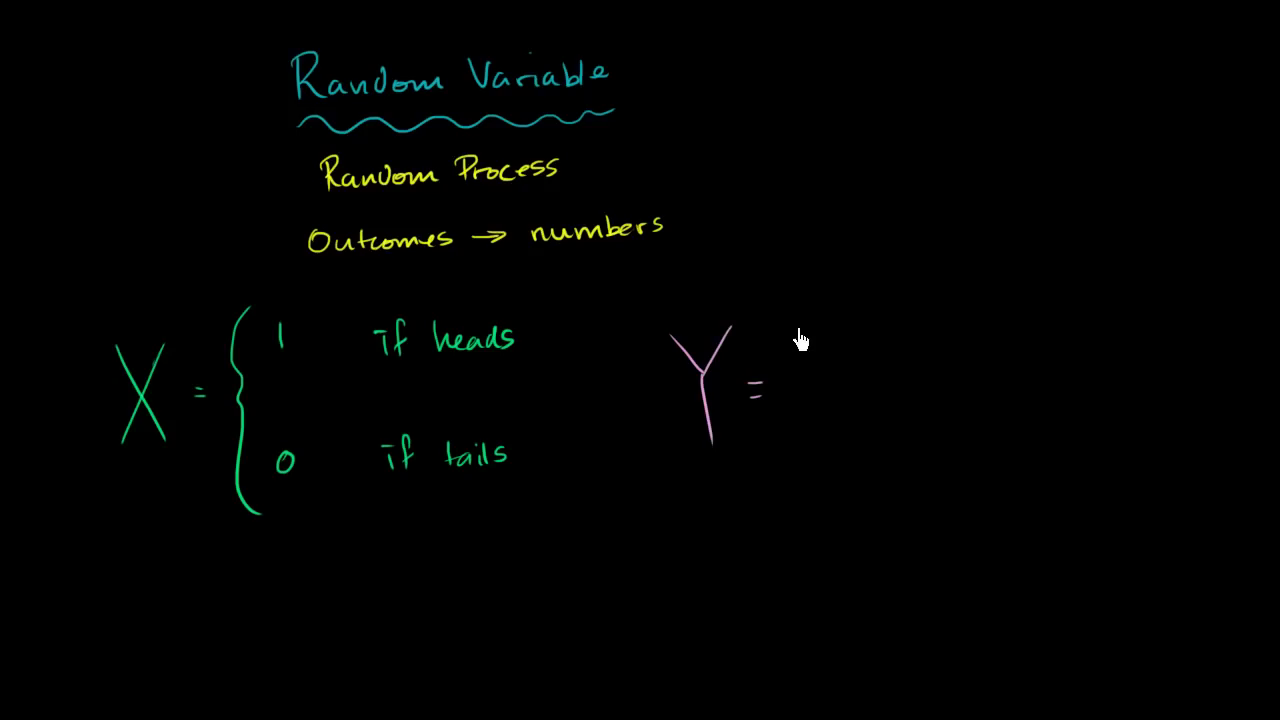 Random Variable
Random Process
Outcomes → numbers
X = { 1 if heads
0 if tails
Y =